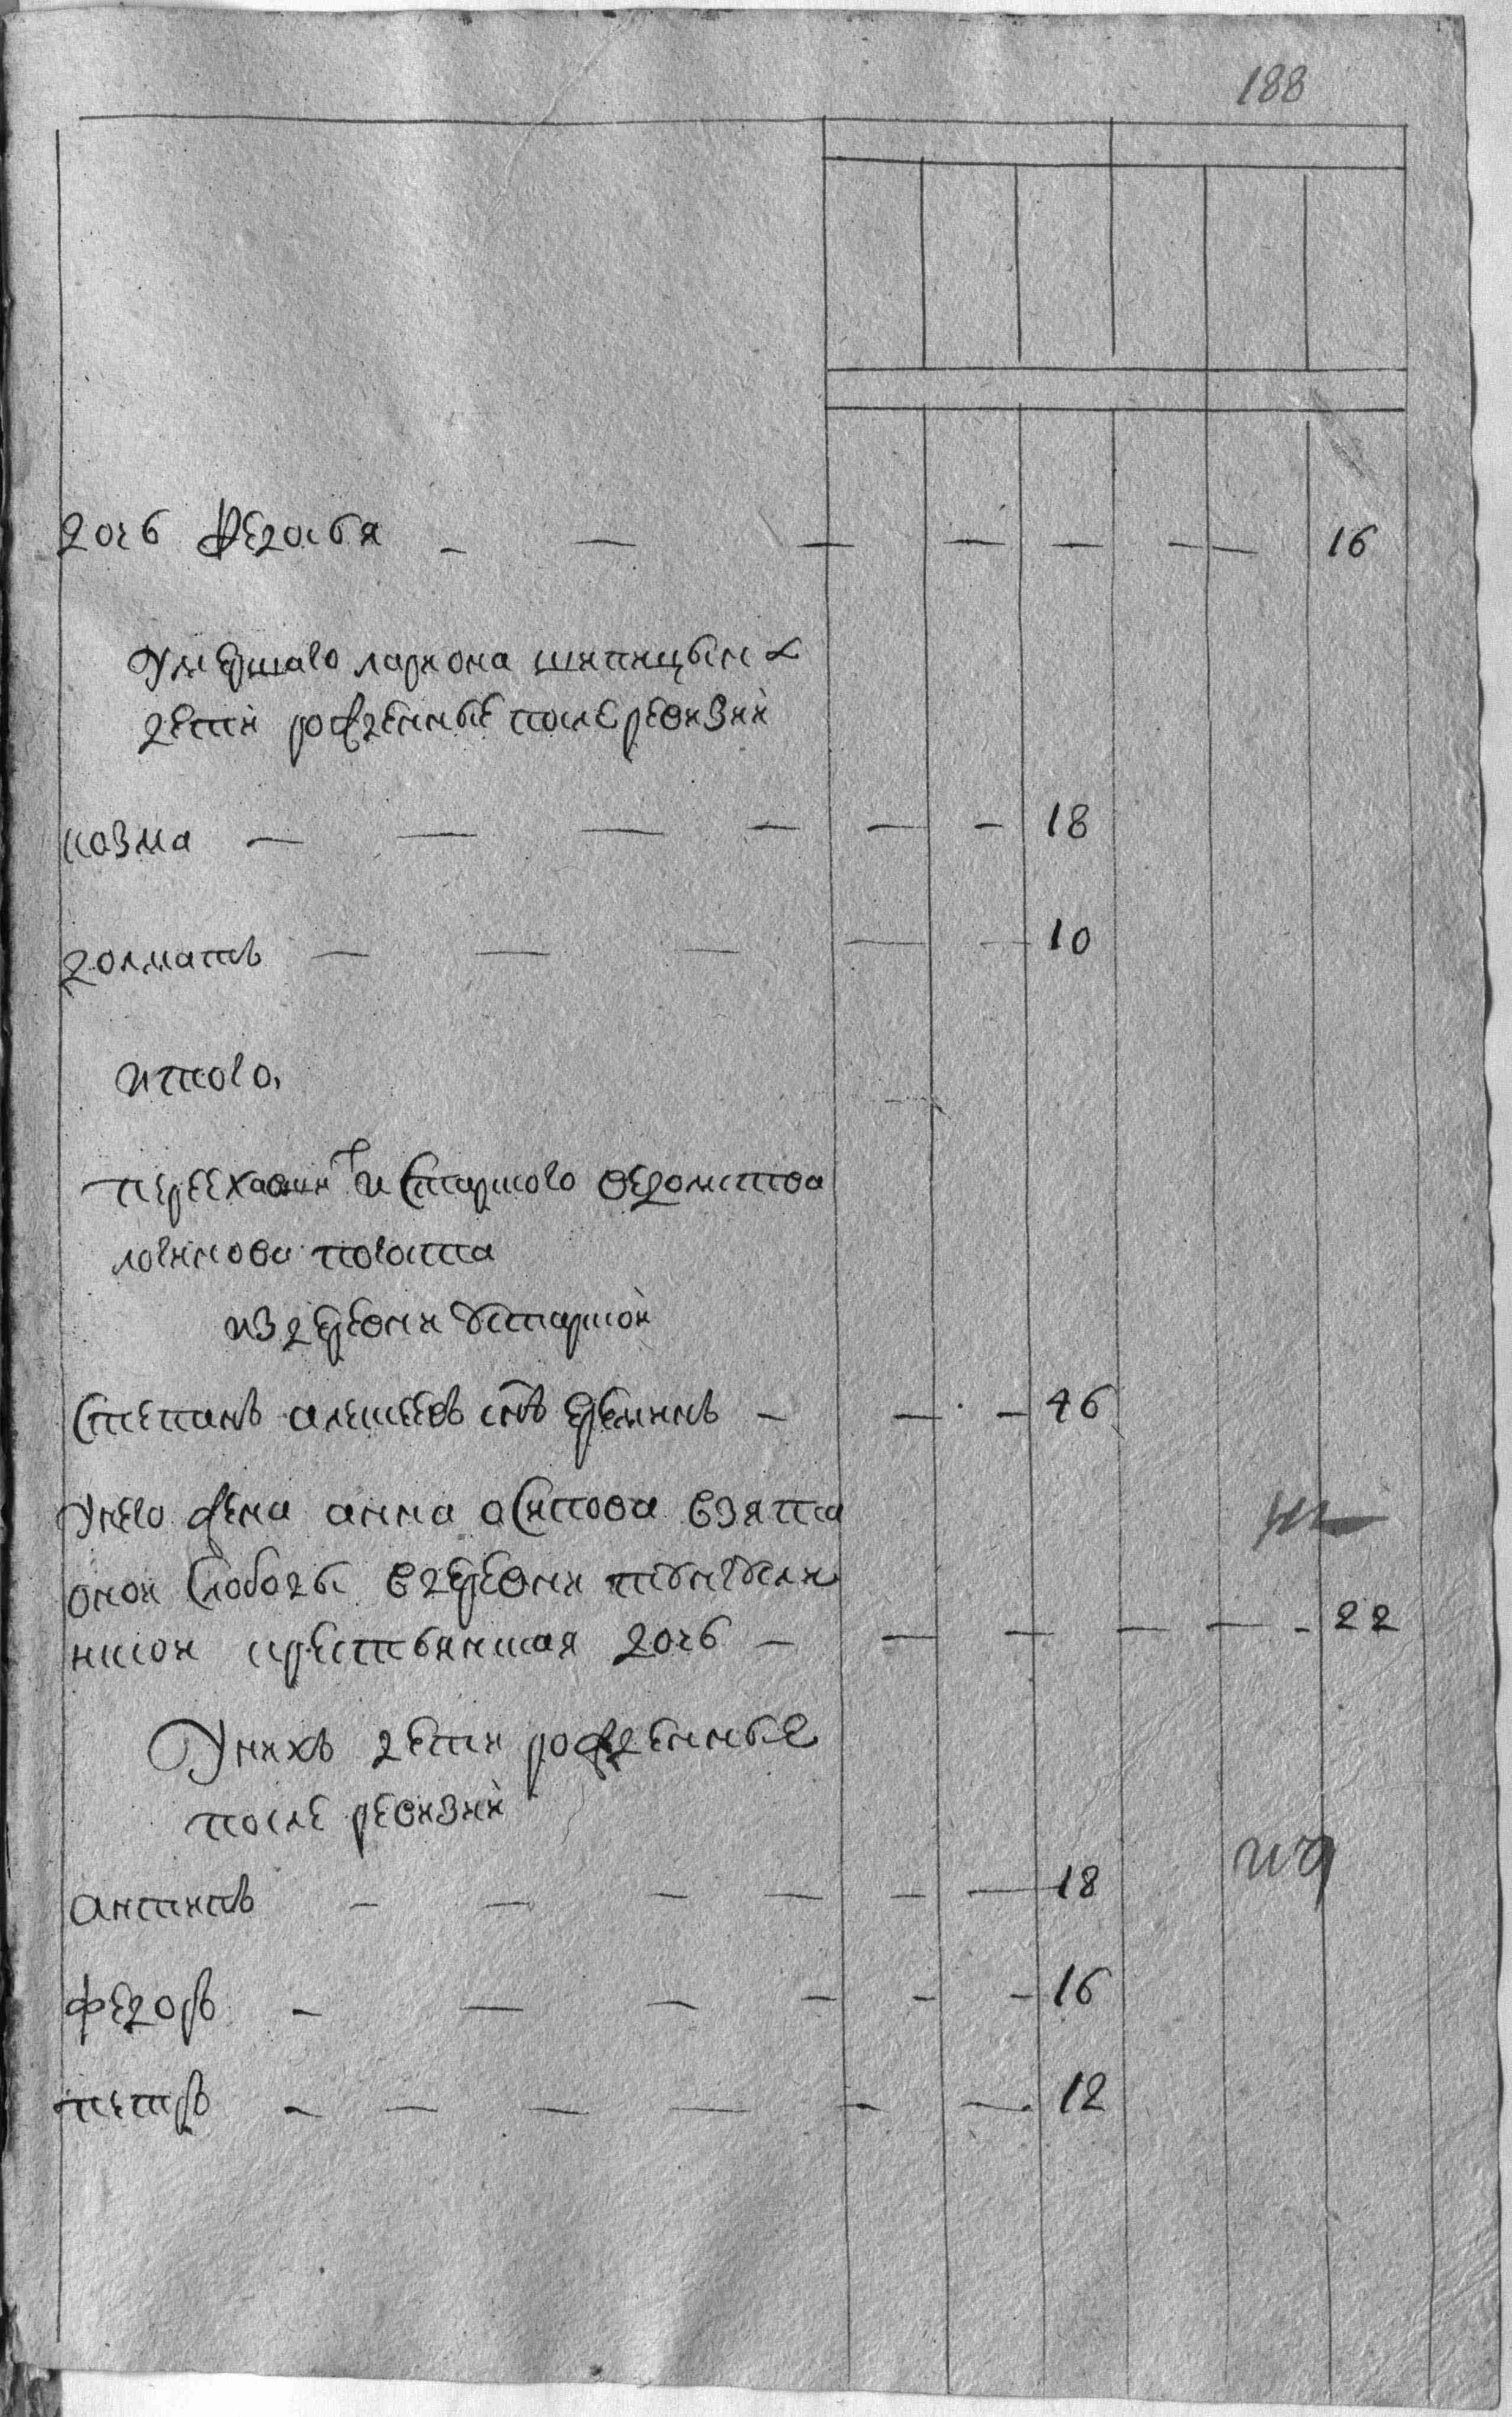 188
дочь федосья — — — — — — — 16
умершаго лариона шипицына
дети рожденные после ревизии
козма — — — — — — 18
долматъ — — — — — 10
итого
переехавши и старского ведомства
логинова погоста
из деревни
степанъ алексеевъ снъ ереминъ — — — 46
унего жена анна осипова взята
оной слободы вдеревни
нской крестьянская дочь — — — — — - 22
унихъ дети рожденные
после ревизии
антипъ — — — — — — 18
федоръ — — — — — — 16
петръ — — — — — — 12